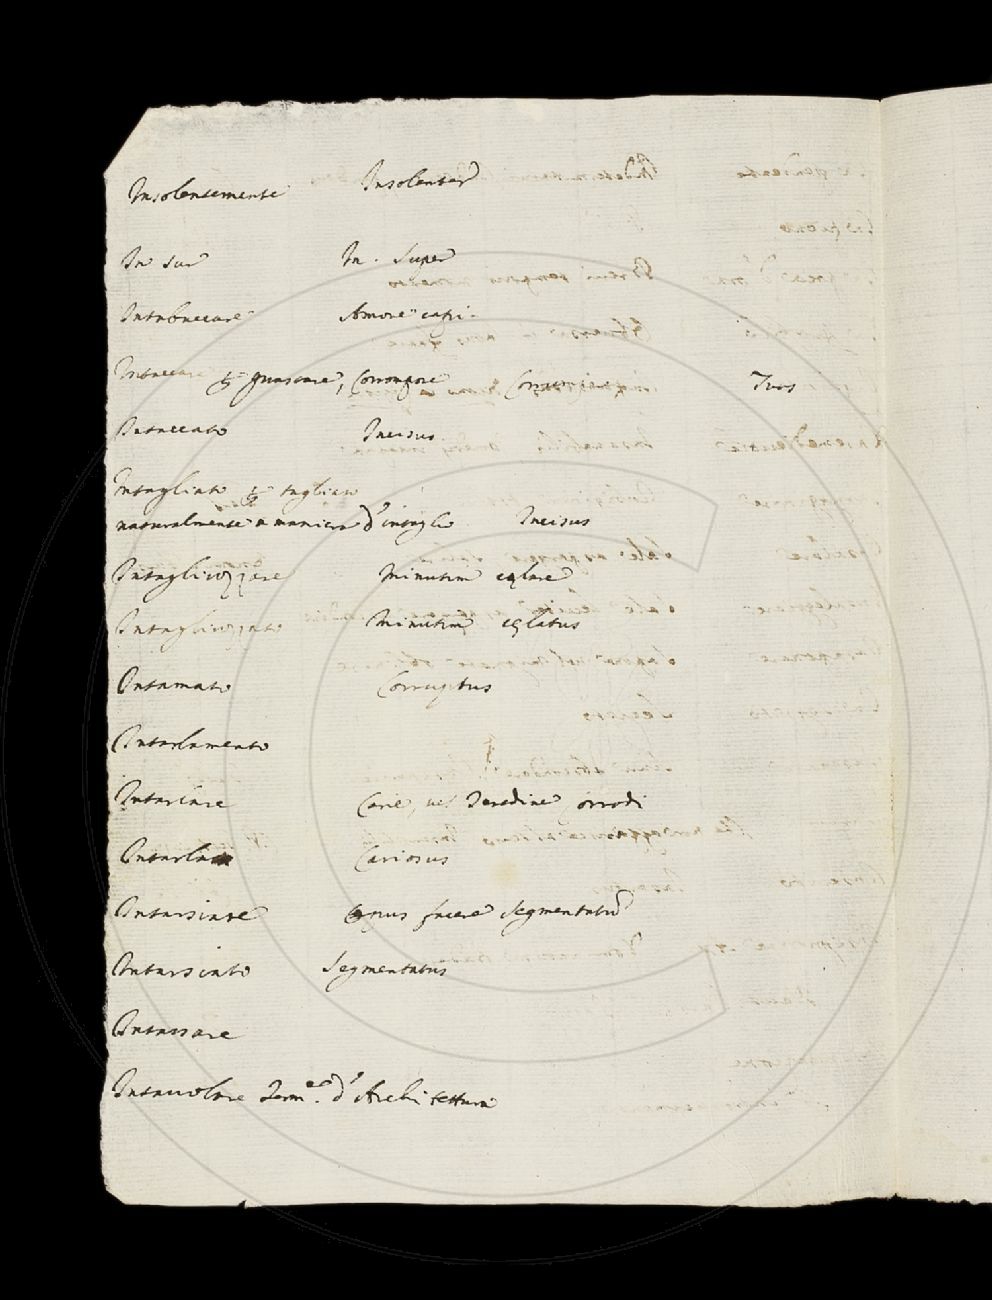 Insolentemente Insolenter
In sur In. Super
Intabaccare Amore capi.
Intaccare p guastare, Corrompere Corrumpere
Intaccato Incisus
Intagliato p tagliato
naturalmente a maniera d'intagli Incisus
Intagliuzzare Minutim cælare
Intagliuzzato Minutim cælatus
Intamato Corruptus
Intarlamento
Intarlare Carie, vel Teredine errodi
Intarlato Cariosus
Intarsiare Opus facere Segmentatu
Intarsiato Segmentatus
Intassare
Intavolare Term. d'Architettura